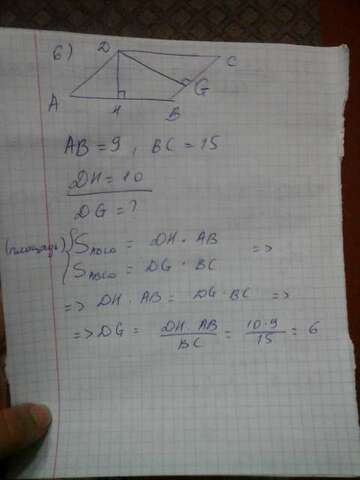 6) D C
A H B G
AB = 9 , BC = 15
DH = 10
DG = ?
(площадь) { S_ABCD = DH · AB =>
{ S_ABCD = DG · BC
=> DH · AB = DG · BC =>
=> DG = DH · AB / BC = 10·9 / 15 = 6